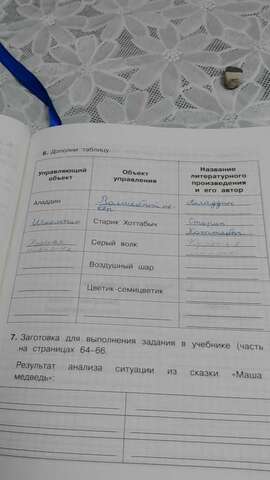 6. Дополни таблицу.
Управляющий объект
Объект управления
Название литературного произведения и его автор
Аладдин
Волшебный
Старик Хоттабыч
Старик Хоттабыч
Серый волк
Воздушный шар
Цветик-семицветик
7. Заготовка для выполнения задания в учебнике (часть
на страницах 64–66.
Результат анализа ситуации из сказки «Маша
медведь»: